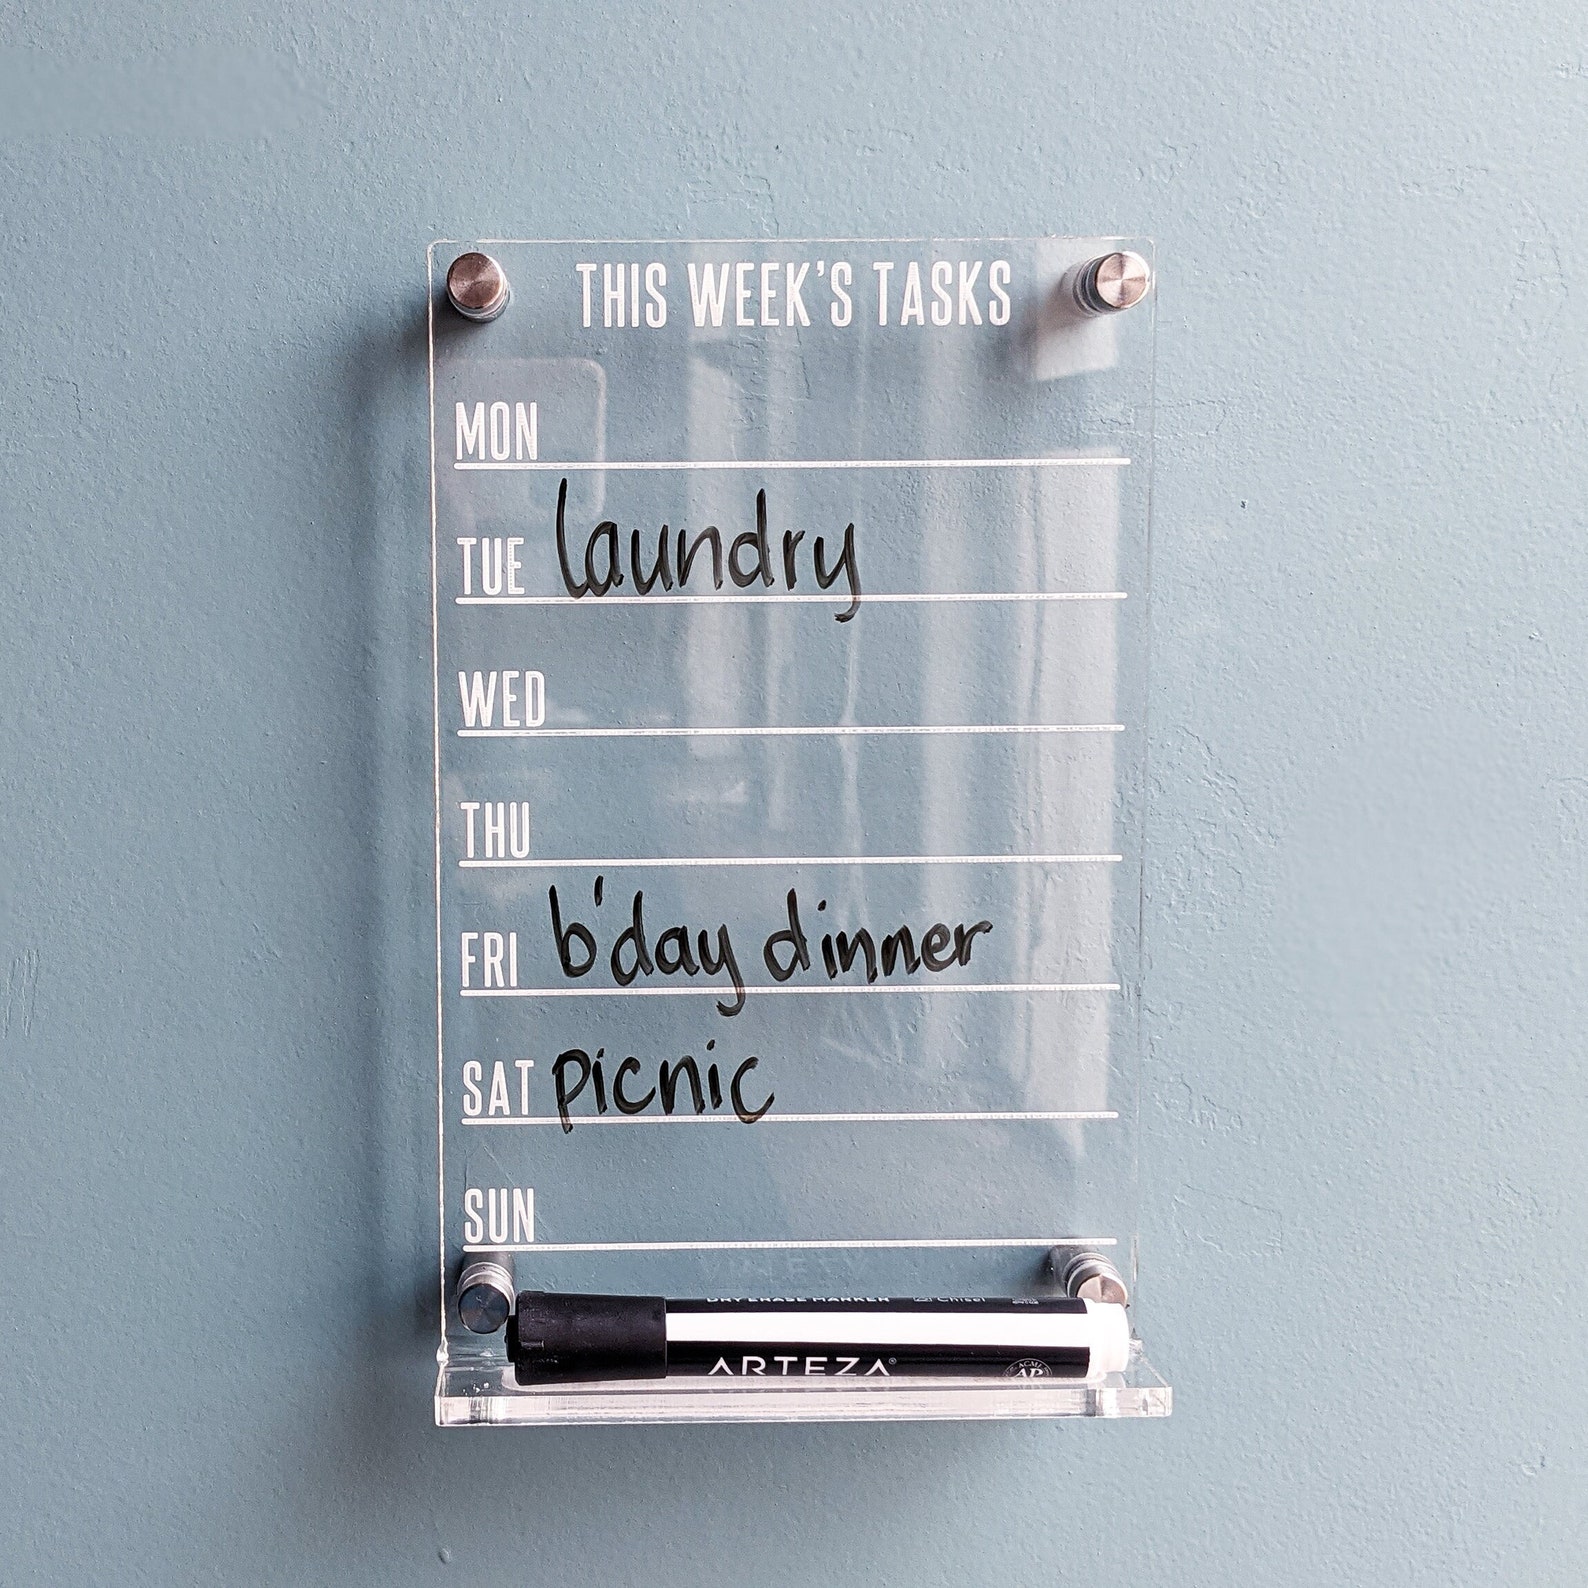 THIS WEEK'S TASKS
MON
TUE laundry
WED
THU
FRI b'day dinner
SAT picnic
SUN
DRY ERASE MARKER Chisel
ARTEZA®
ACMI
AP